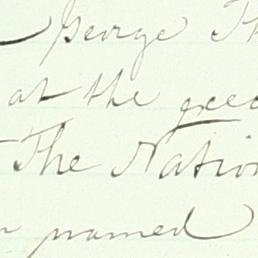 George Th
at the gree
The Nation
named